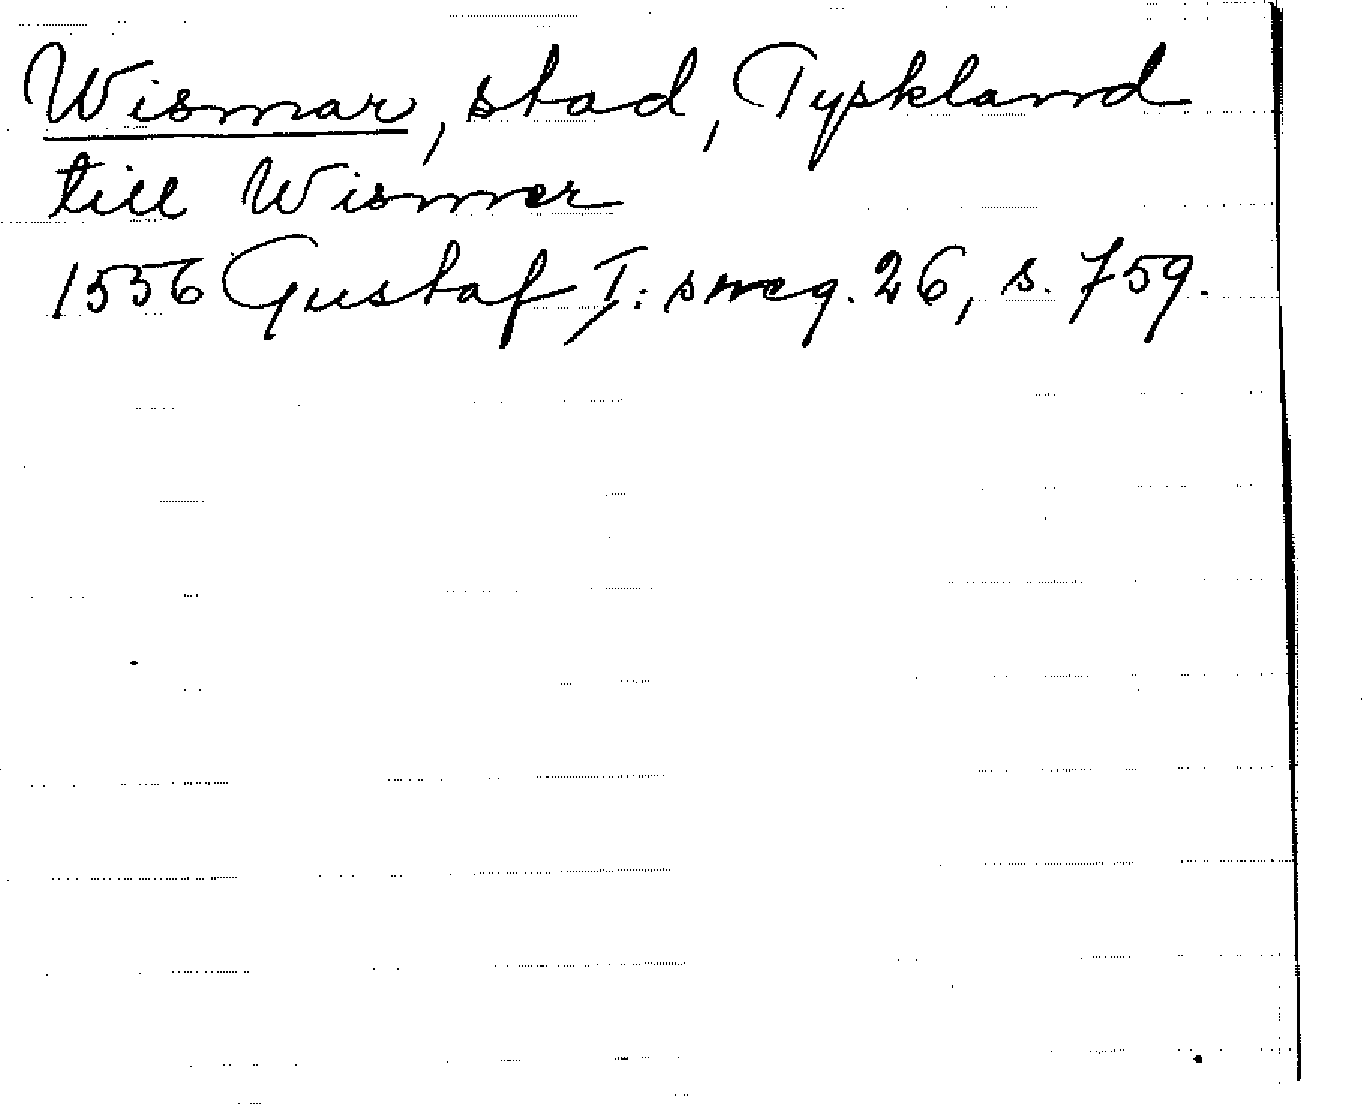 Wismar, stad, Tyskland
till Wismer
1556 Gustaf I: s reg. 26, s. 759.